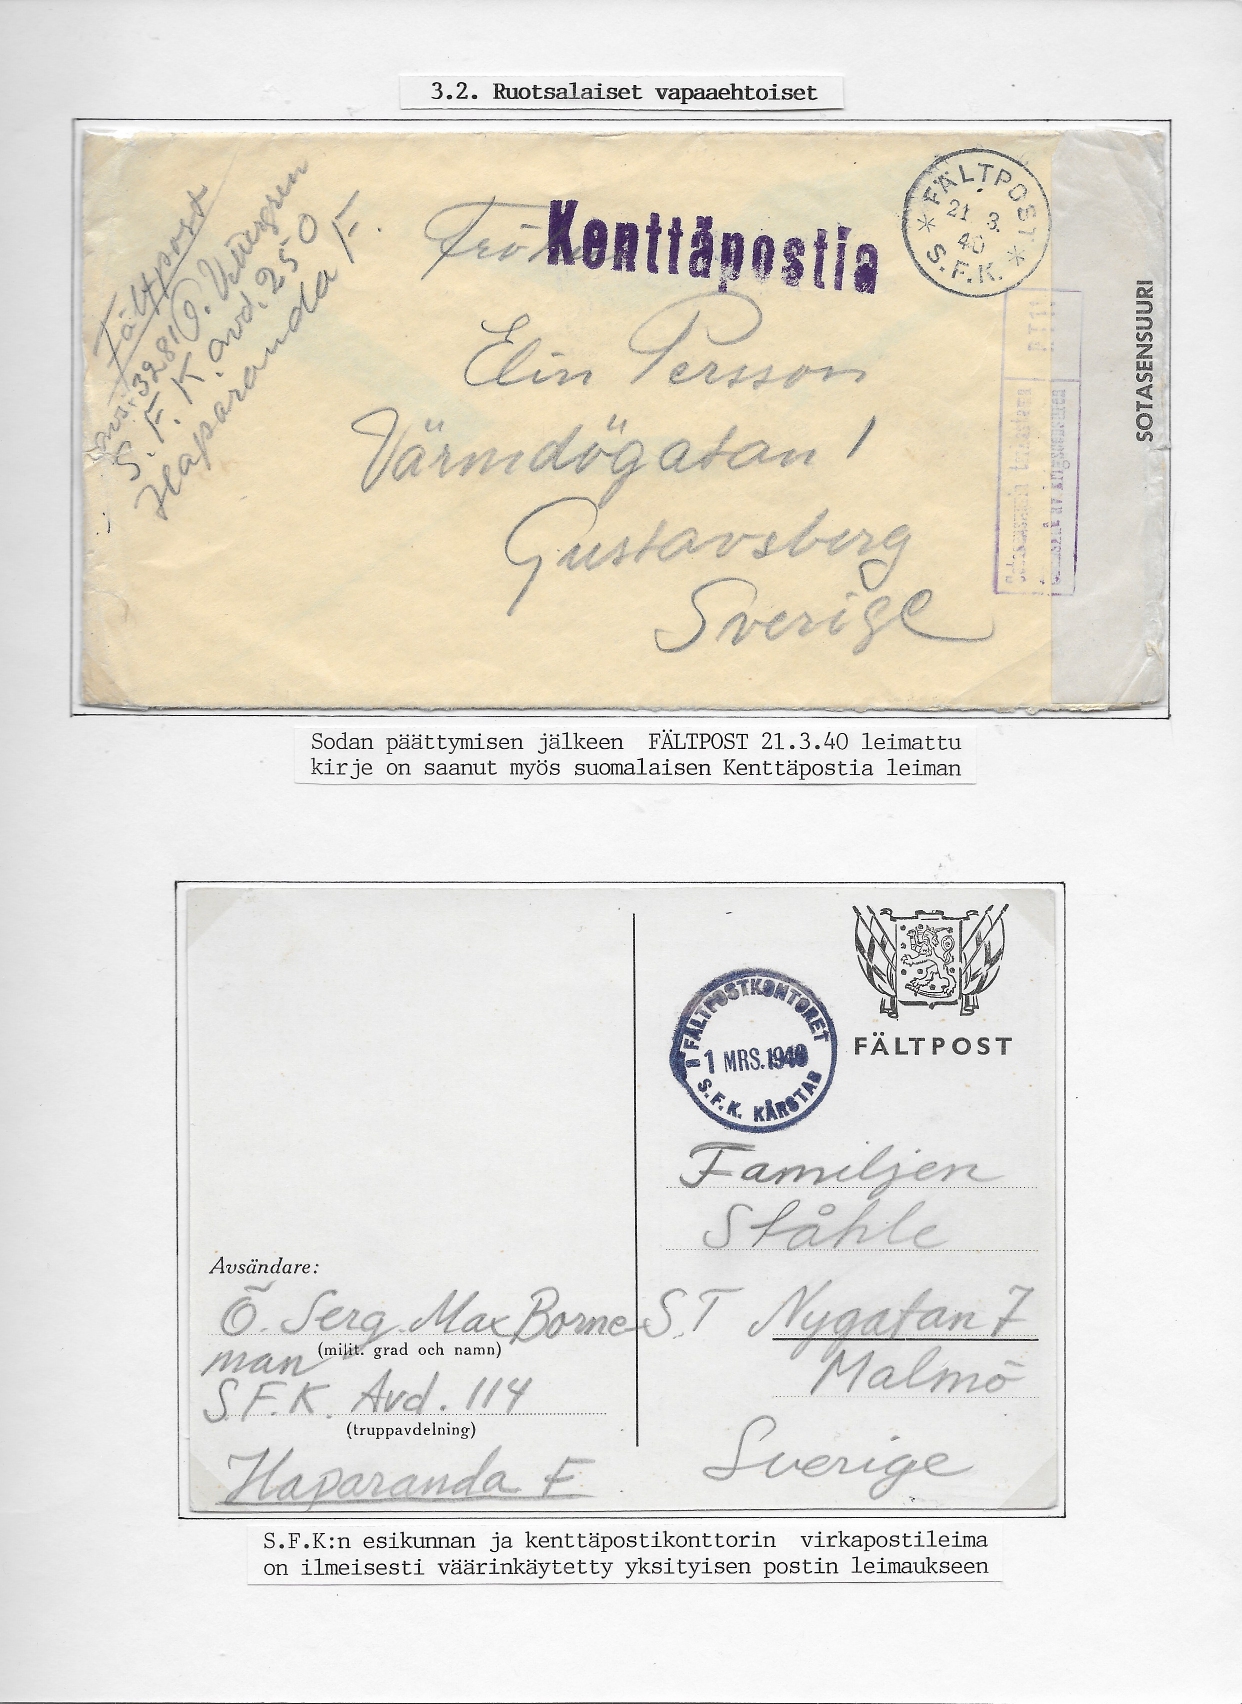 3.2. Ruotsalaiset vapaaehtoiset
Fältpost
3281
S.F.K. avd. 250
Haparanda F.
Kenttäpostia
FÄLTPOST
21 3.
40
* S.F.K. *
Elin Persson
Värmdögatan 1
Gustavsberg
Sverige
SOTASENSUURI
Sodan päättymisen jälkeen FÄLTPOST 21.3.40 leimattu
kirje on saanut myös suomalaisen Kenttäpostia leiman
FÄLTPOST
FÄLTPOSTKONTORET
1 MRS. 1940
S.F.K. KÅRSTAB
Familjen
Ståhle
S.T Nygatan 7
Malmö
Sverige
Avsändare:
Ö. Serg. Max Borne-
man
(milit. grad och namn)
S.F.K. Avd. 114
(truppavdelning)
Haparanda F.
S.F.K:n esikunnan ja kenttäpostikonttorin virkapostileima
on ilmeisesti väärinkäytetty yksityisen postin leimaukseen